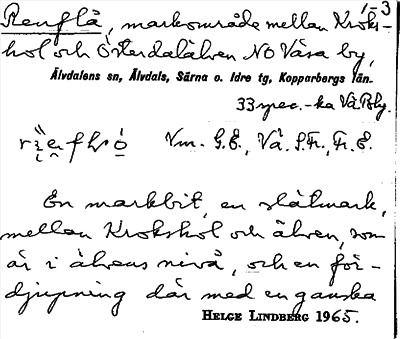 Renflå, markområde mellan Kroks- 1-3
hol och Österdalälven NO Våsa by,
Älvdalens sn, Älvdals, Särna o. Idre tg, Kopparbergs län.
33 spec.-ka Vå. Bhg.
Vm. G.E., Vå. S.Fr., Fr. E.
En markbit, en slåtmark,
mellan Krokshol och älven, som
är i älvens nivå, och en för-
djupning där med en ganska
HELGE LINDBERG 1965.